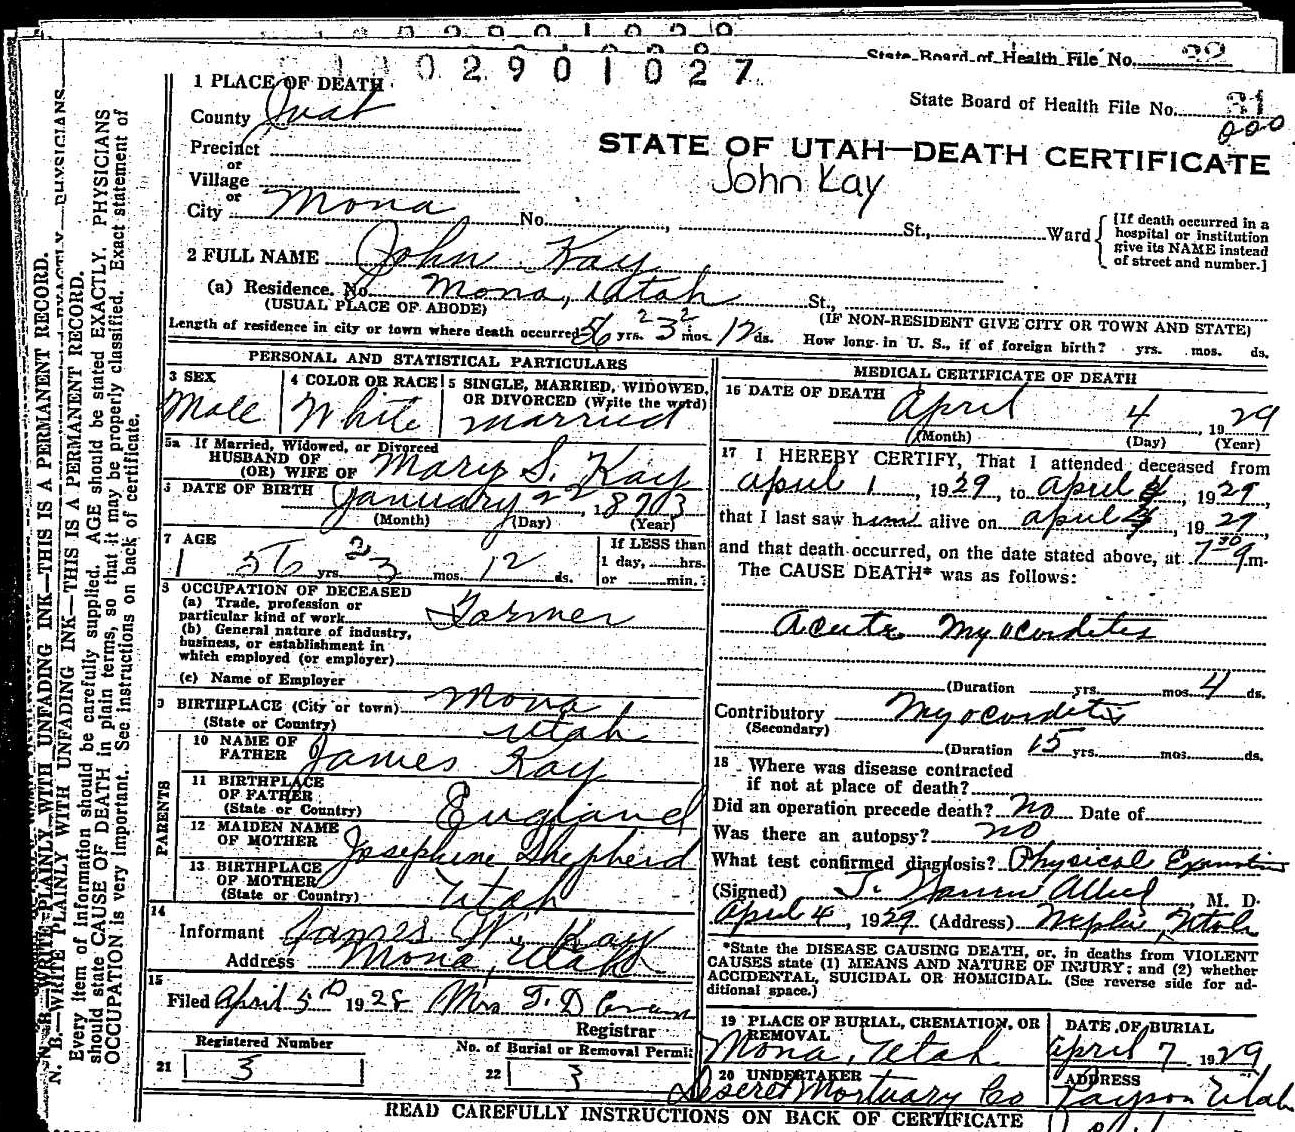 1 1 0 2 9 0 1 0 2 7
State Board of Health File No. 22
1 PLACE OF DEATH
State Board of Health File No. 31
000
County Juab
STATE OF UTAH—DEATH CERTIFICATE
Precinct
or
John Kay
Village
or
City Mona No. , St., Ward
[If death occurred in a
hospital or institution
give its NAME instead
of street and number.]
2 FULL NAME John Kay
(a) Residence. No. Mona, Utah St.,
(USUAL PLACE OF ABODE) (IF NON-RESIDENT GIVE CITY OR TOWN AND STATE)
Length of residence in city or town where death occurred 56 yrs. 2 3 2 mos. 12 ds. How long in U. S., if of foreign birth? yrs. mos. ds.
PERSONAL AND STATISTICAL PARTICULARS
3 SEX
Male
4 COLOR OR RACE
White
5 SINGLE, MARRIED, WIDOWED,
OR DIVORCED (Write the word)
married
5a If Married, Widowed, or Divorced
HUSBAND OF
(OR) WIFE OF Mary S. Kay
DATE OF BIRTH January 22, 1873
(Month) (Day) (Year)
7 AGE
56 yrs. 2 3 mos. 12 ds.
If LESS than
1 day, hrs.
or min.
OCCUPATION OF DECEASED
(a) Trade, profession or
particular kind of work Farmer
(b) General nature of industry,
business, or establishment in
which employed (or employer)
(c) Name of Employer
9 BIRTHPLACE (City or town) Mona
(State or Country) Utah
PARENTS
10 NAME OF
FATHER James Kay
11 BIRTHPLACE
OF FATHER
(State or Country) England
12 MAIDEN NAME
OF MOTHER Josephine Shepherd
13 BIRTHPLACE
OF MOTHER
(State or Country) Utah
14
Informant James W. Kay
Address Mona, Utah
15
Filed April 5 1928 Mrs T. D Evans
Registrar
21 Registered Number
3
22 No. of Burial or Removal Permit
3
MEDICAL CERTIFICATE OF DEATH
16 DATE OF DEATH April 4, 1929
(Month) (Day) (Year)
17 I HEREBY CERTIFY, That I attended deceased from
april 1, 1929, to april 4, 1929,
that I last saw him alive on april 4, 1929,
and that death occurred, on the date stated above, at 7 30 a.m.
The CAUSE DEATH* was as follows:
Acute Myocordites
(Duration yrs. mos. 4 ds.
Contributory Myocordites
(Secondary)
(Duration 15 yrs. mos. ds.
18 Where was disease contracted
if not at place of death?
Did an operation precede death? No Date of
Was there an autopsy? no
What test confirmed diagnosis? Physical
(Signed) J. M. D.
April 4, 1929 (Address) Nephi, Utah
*State the DISEASE CAUSING DEATH, or, in deaths from VIOLENT
CAUSES state (1) MEANS AND NATURE OF INJURY; and (2) whether
ACCIDENTAL, SUICIDAL OR HOMICIDAL. (See reverse side for ad-
ditional space.)
19 PLACE OF BURIAL, CREMATION, OR
REMOVAL
Mona, Utah
DATE OF BURIAL
April 7 1929
20 UNDERTAKER
Deseret Mortuary Co
ADDRESS
Payson Utah
READ CAREFULLY INSTRUCTIONS ON BACK OF CERTIFICATE
N. B.—WRITE PLAINLY WITH UNFADING INK—THIS IS A PERMANENT RECORD.
Every item of information should be carefully supplied. AGE should be stated EXACTLY. PHYSICIANS
should state CAUSE OF DEATH in plain terms, so that it may be properly classified. Exact statement of
OCCUPATION is very important. See instructions on back of certificate.